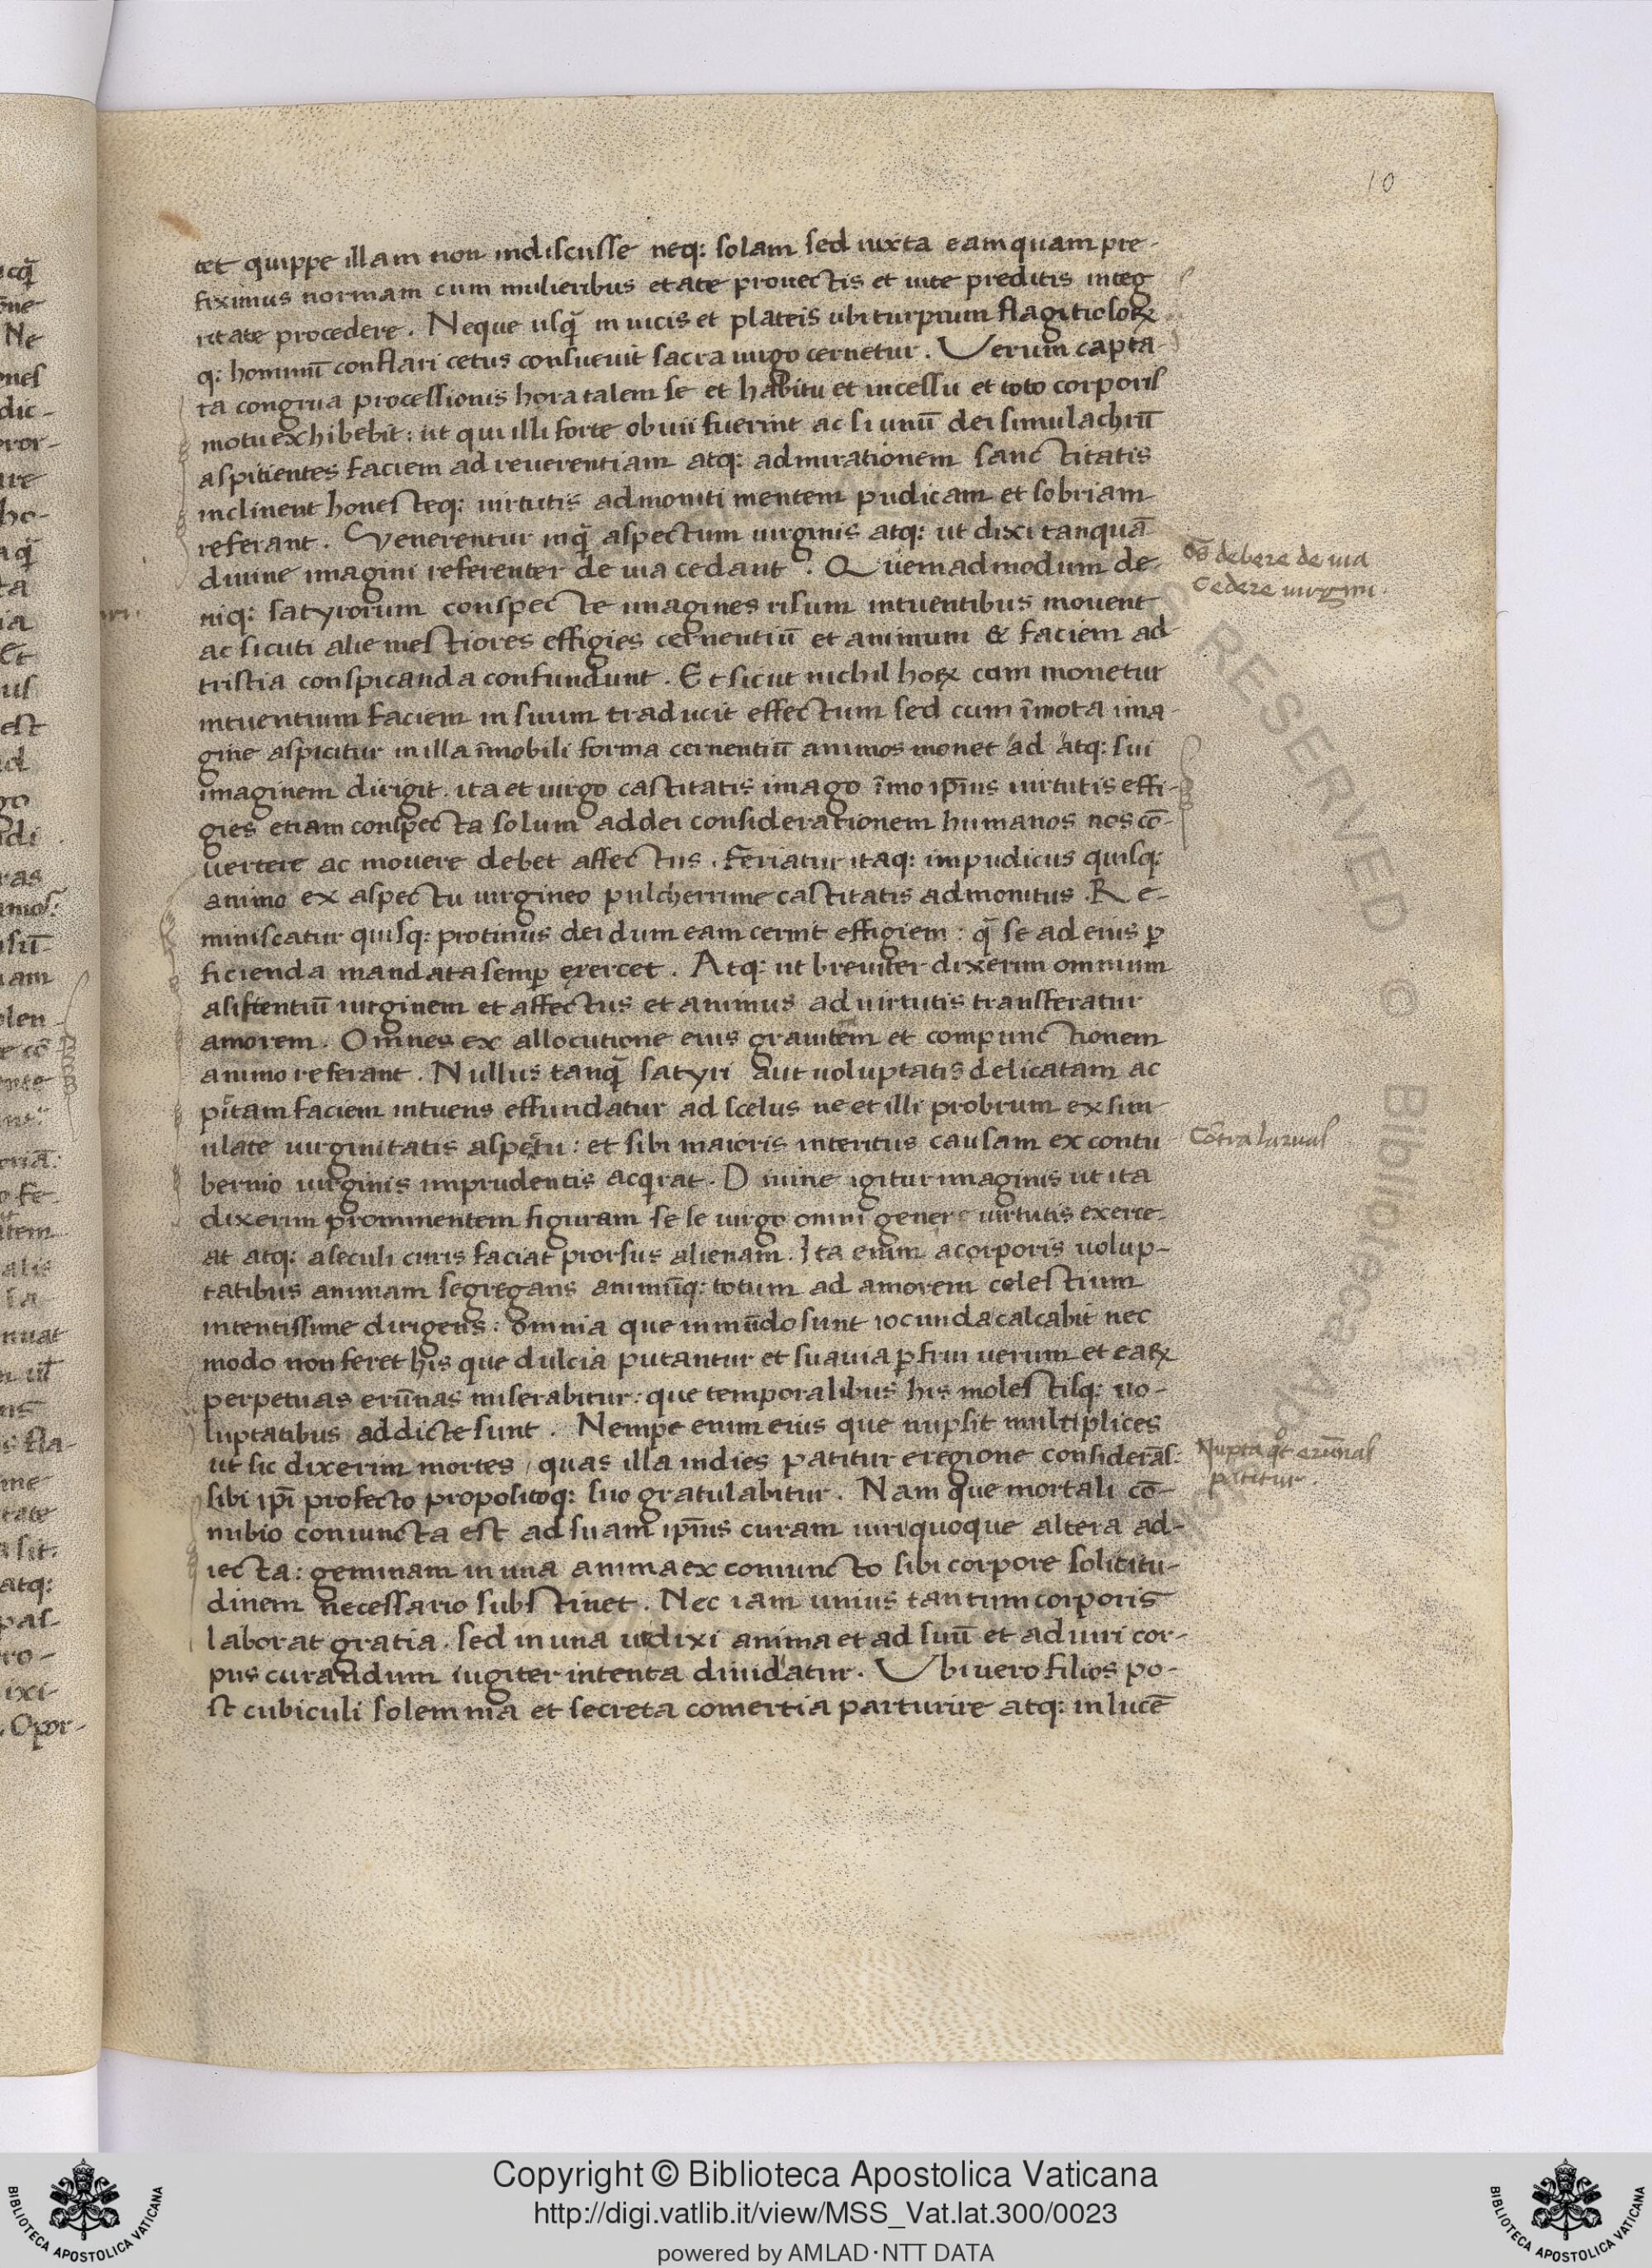 10
tet quippe illam non indiscusse neq: solam sed iuxta eam quam pre-
fiximus normam cum mulieribus etate prouectis et uite preditis integ
ritate procedere. Neque usq̄ in uicis et plateis ubi turpium flagitiosoꝝ
q: hominū conflari cetus consueuit sacra uirgo cernetur. Verum capta-
ta congrua processionis hora talem se et habitu et incessu et toto corporis
motu exhibebit: ut qui illi forte obuii fuerint ac si unū dei simulachrū
aspitientes faciem ad reuerentiam atq: admirationem sanctitatis
inclinent honesteq: uirtutis admoniti mentem pudicam et sobriam
referant. Venerentur inq̄ aspectum uirginis atq: ut dixi tanquā
diuine imagini referenter de uia cedant. Quemadmodum de-
niq: satyrorum conspecte imagines risum intuentibus mouent
ac sicuti alie mestiores effigies cernentiū et animum & faciem ad
tristia conspicanda confundunt. Et sicut nichil hoꝝ cum monetur
intuentium faciem in suum traducit effectum sed cum īmota ima-
gine aspicitur in illa īmobili forma cernentiū animos monet ad atq: sui
imaginem dirigit. ita et uirgo castitatis imago īmo ip̄ius uirtutis effi-
gies etiam conspecta solum ad dei considerationem humanos nos cō-
uertere ac mouere debet affectus. Feriatur itaq: impudicus quisq:
animo ex aspectu uirgineo pulcherrime castitatis admonitus. Re-
miniscatur quisq: protinus dei dum eam cernit effigiem: q̄ se ad eius ꝑ
ficienda mandata semꝑ exercet. Atq: ut breuiter dixerim omnium
asistentiū uirginem et affectus et animus ad uirtutis transferatur
amorem. Omnes ex allocutione eius grauitem et compunctionem
animo referant. Nullus tanq̄ satyri aut uoluptatis delicatam ac
pi̇tam faciem intuens effundatur ad scelus ne et illi probrum ex sim-
ulate uirginitatis aspectu: et sibi maioris interitus causam ex contu-
bernio uirginis imprudentis acqrat. Diuine igitur imaginis ut ita
dixerim prominentem figuram se se uirgo omni genere uirtutis exerce-
at atq: a seculi curis faciat prorsus alienam. Ita enim a corporis uolup-
tatibus animam segregans animūq: totum ad amorem celestium
intentissime dirigens: omnia que in mūdo sunt iocunda calcabit nec
modo non feret his que dulcia putantur et suauia ꝑfrui uerum et eaꝝ
perpetuas erūnas miserabitur: que temporalibus his molestisq: uo-
luptatibus addicte sunt. Nempe enim eius que nupsit multiplices
ut sic dixerim mortes, quas illa indies patitur eregione considerās:
sibi ip̄i profecto propositoq: suo gratulabitur. Nam que mortali cō-
nubio coniuncta est ad suam ip̄ius curam uiri quoque altera ad-
iecta: geminam in una anima ex coniuncto sibi corpore solicitu-
dinem necessario substinet. Nec iam unius tantum corporis
laborat gratia. sed in una ut dixi anima et ad suū et ad uiri cor-
pus curandum iugiter intenta diuidatur. Vbi uero filios po-
st cubiculi solemnia et secreta comertia parturire atq: in lucē
oēs debere de uia
cedere uirgini.
Cōtra laruas
Nupta qt erūnas
patitur.
Copyright © Biblioteca Apostolica Vaticana
http://digi.vatlib.it/view/MSS_Vat.lat.300/0023
powered by AMLAD·NTT DATA
BIBLIOTECA APOSTOLICA VATICANA
BIBLIOTECA APOSTOLICA VATICANA